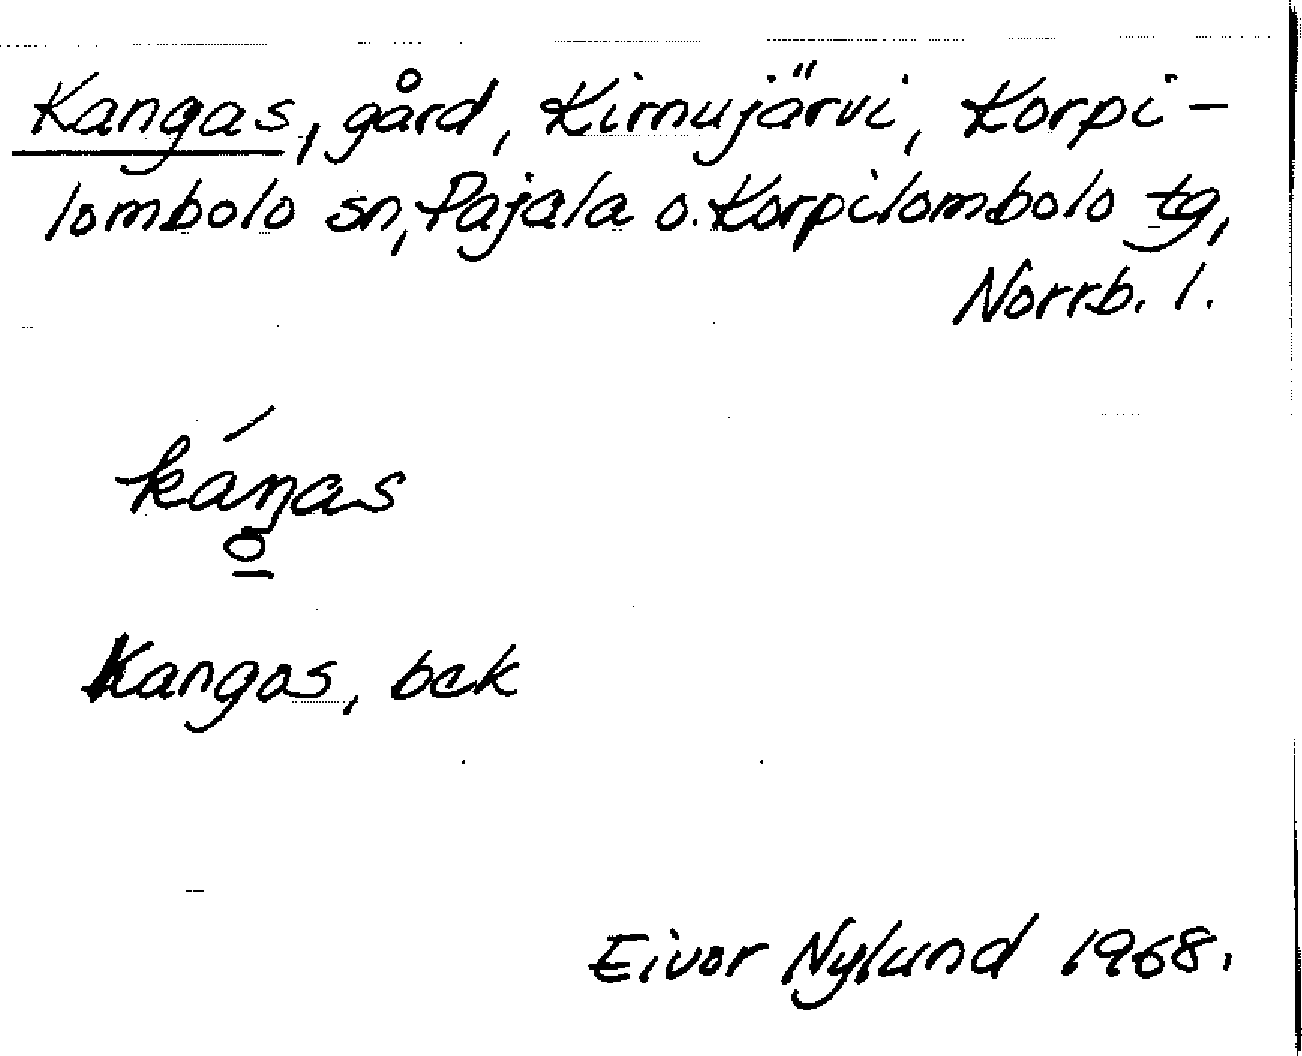 Kangas, gård, Kirnujärvi, Korpi-
lombolo sn, Pajala o. Korpilombolo tg,
Norrb. l.
káŋas
Kangos, bek
Eivor Nylund 1968.